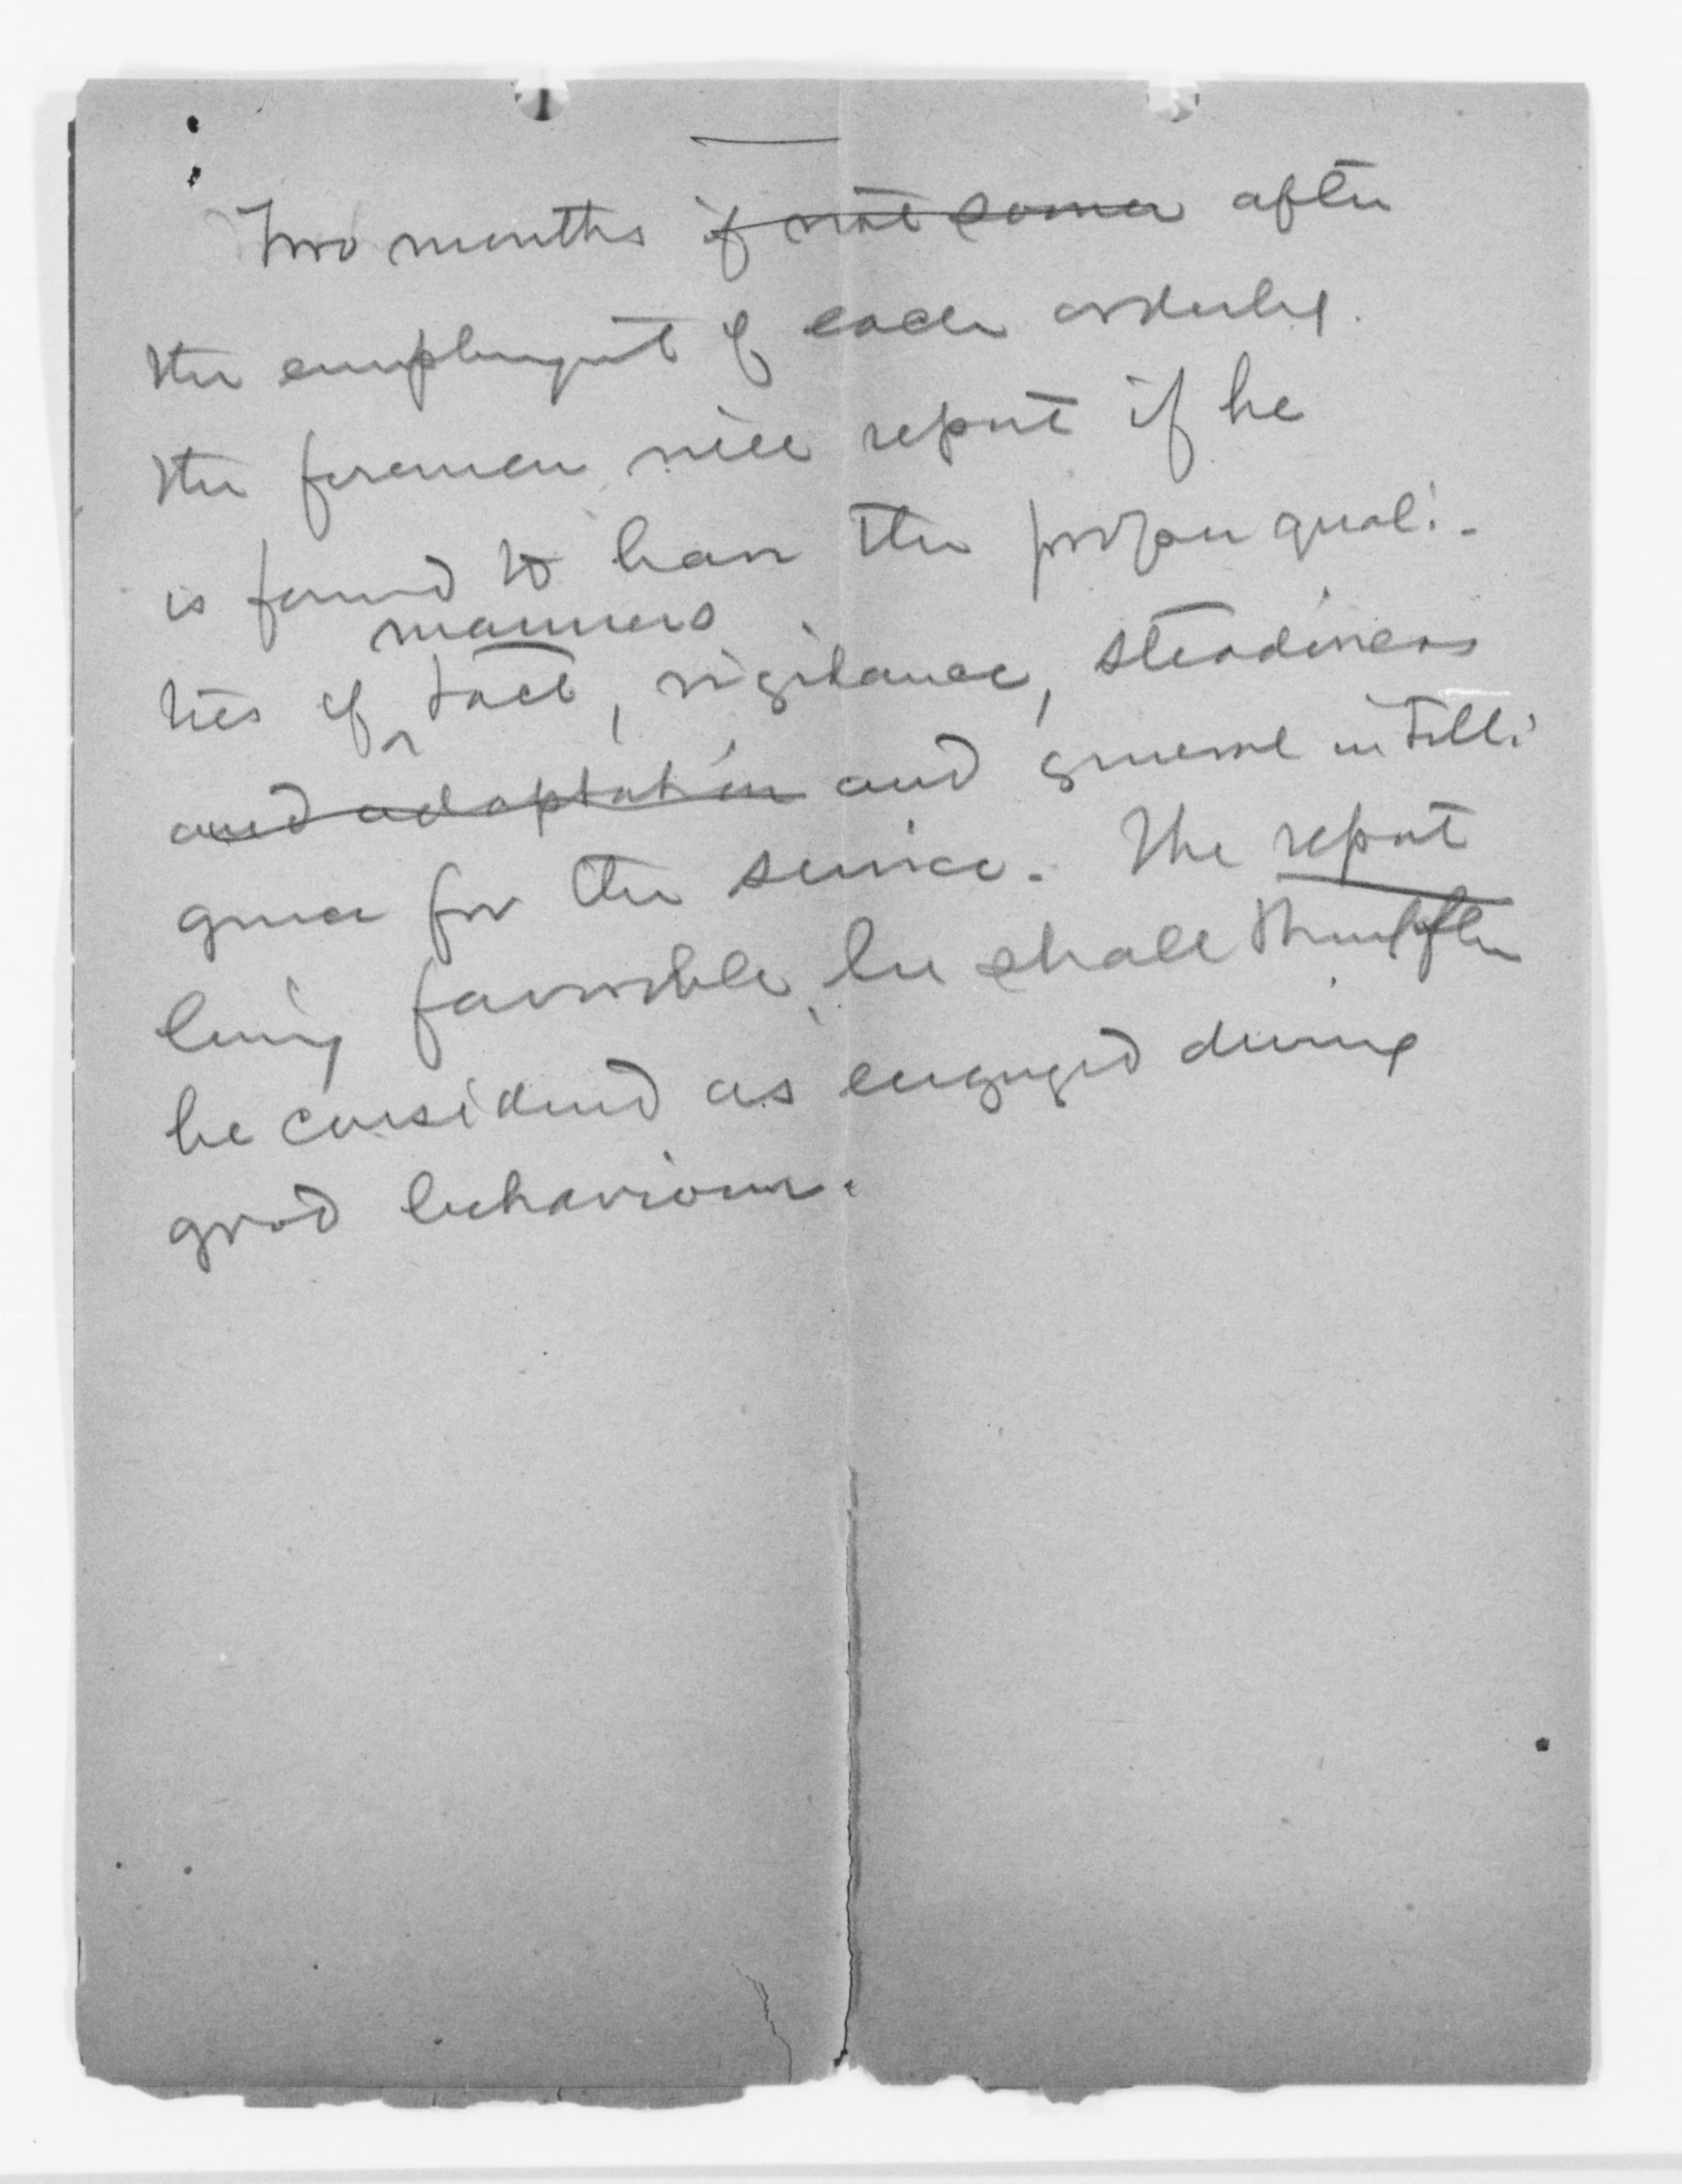 Two months if not sooner after
the employment of each orderly
the foreman will report if he
is found to have the proper quali-
manners
ties of tact, vigilance, steadiness
and adaptation and general intelli
gence for the service. The report
being favorable, he shall thereafter
be considered as engaged during
good behaviour.